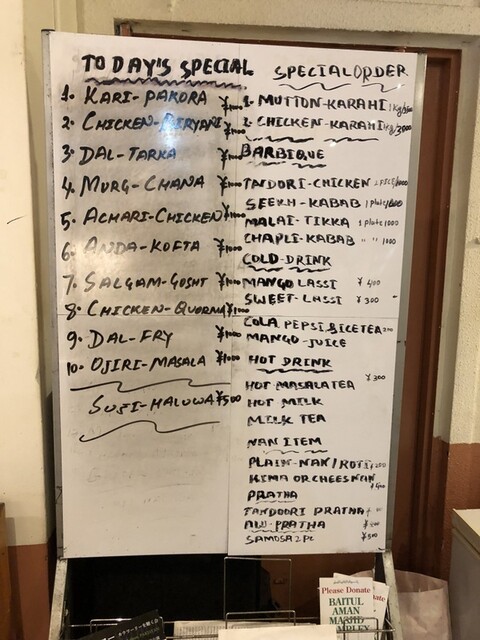 TODAY'S SPECIAL
1. KARI-PAKORA ¥1000
2. CHICKEN-BIRYANI ¥1000
3. DAL-TARKA ¥1000
4. MURG-CHANA ¥1000
5. ACHARI-CHICKEN ¥1000
6. ANDA-KOFTA ¥1000
7. SALGAM-GOSHT ¥1000
8. CHICKEN-QUORMA ¥1000
9. DAL-FRY ¥1000
10. OJIRI-MASALA ¥1000
SUJI-HALUWA ¥500
SPECIAL ORDER
1- MUTTON-KARAHI 1kg/
2- CHICKEN-KARAHI 1kg/3000
BARBIQUE
TANDORI-CHICKEN 2 PICE/1000
SEEKH-KABAB 1 plate 1000
MALAI-TIKKA 1 plate 1000
CHAPLI-KABAB " " 1000
COLD-DRINK
MANGO LASSI ¥400
SWEET-LASSI ¥300
COLA PEPSI, & ICETEA 200
MANGO-JUICE
HOT DRINK
HOT MASALA TEA ¥300
HOT MILK
MILK TEA
NAN ITEM
PLAIN-NAN/ROTI ¥200
KIMA OR CHEES NAN ¥400
PRATHA
TANDOORI PRATHA
ALU-PRATHA
SAMOSA 2PC ¥300
Please Donate
BAITUL
AMAN
MASJID